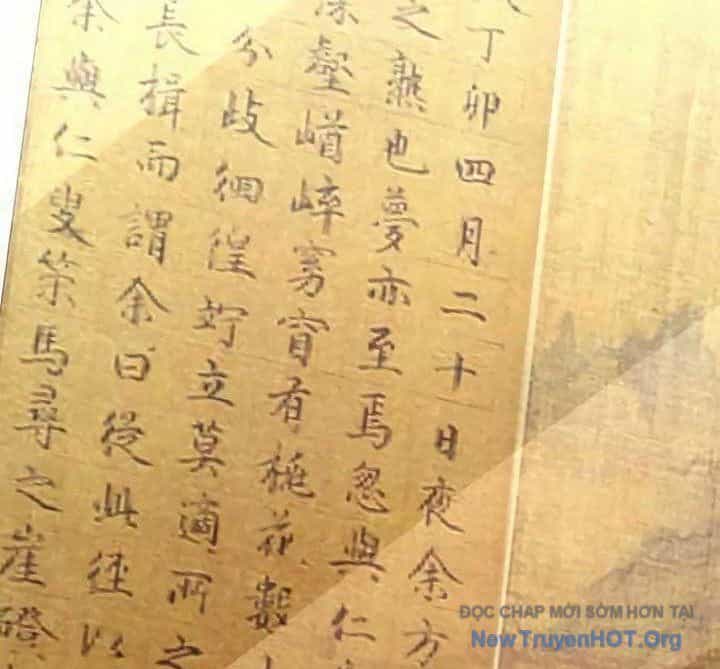 丁卯四月二十日夜余方
之熟也夢亦至焉忽與仁
壑崷崒窈窅有桃花數
分歧徊徨竚立莫適所之
長揖而謂余曰從此徑以
余與仁叟策馬尋之崖磴
ĐỌC CHAP MỚI SỚM HƠN TẠI
NewTruyenHOT.Org